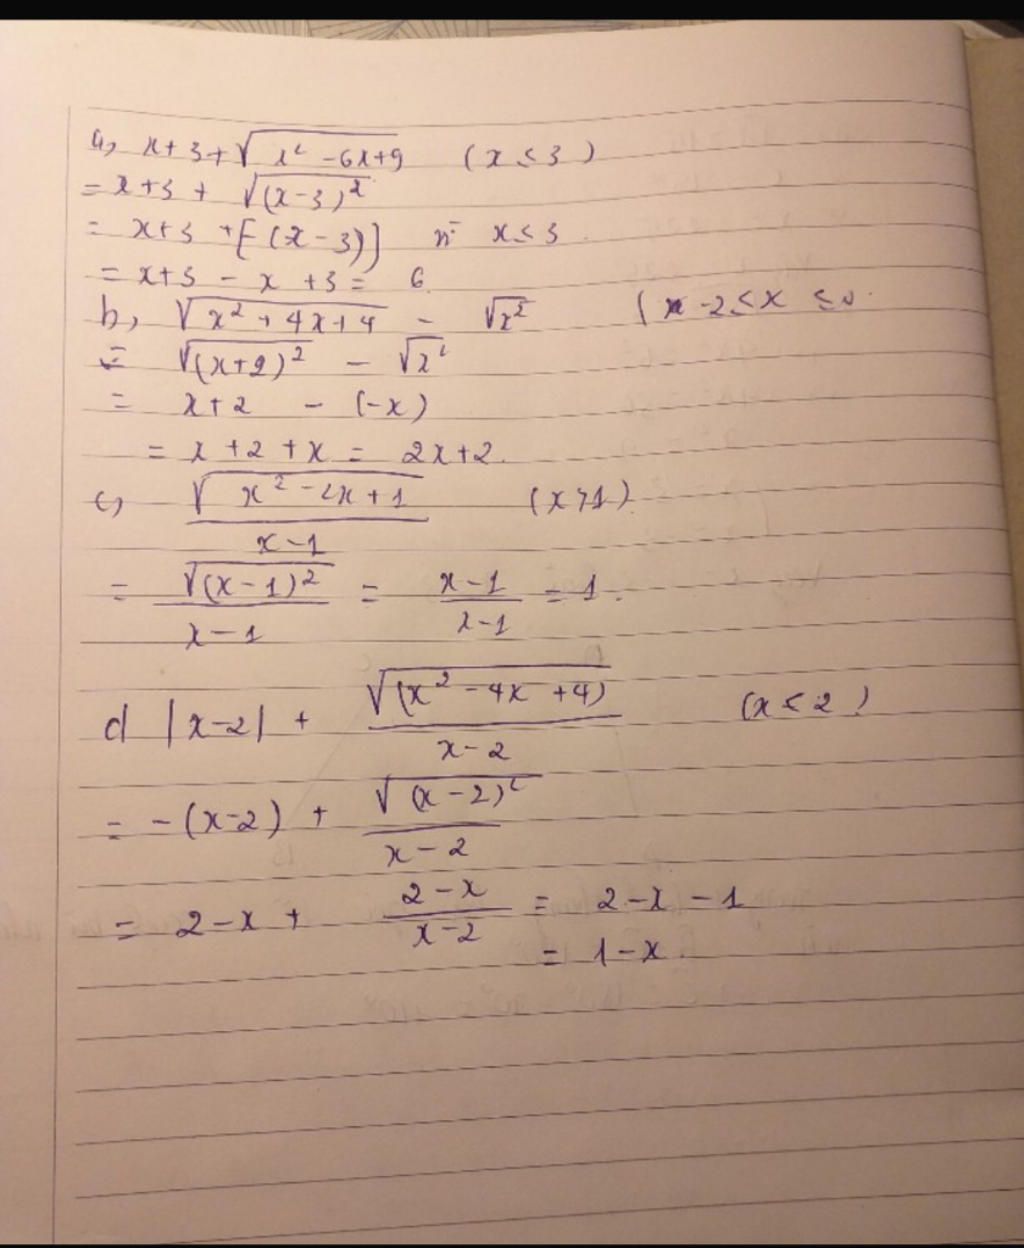 a, x+3+√(x² -6x+9) (x ≤ 3)
= x+3 + √((x-3)²)
= x+3 +[-(x-3)] vì x≤3
= x+3 - x +3 = 6
b, √(x² + 4x+4) - √(x²) ( -2≤x ≤0
= √((x+2)²) - √(x²)
= x+2 - (-x)
= x +2 +x = 2x+2.
c, √(x² -2x+1)/(x-1) (x>1)
= √((x-1)²)/(x-1) = (x-1)/(x-1) = 1.
d |x-2| + √((x² -4x +4))/(x-2) (x < 2)
= -(x-2) + √((x-2)²)/(x-2)
= 2-x + (2-x)/(x-2) = 2-x -1
= 1-x.